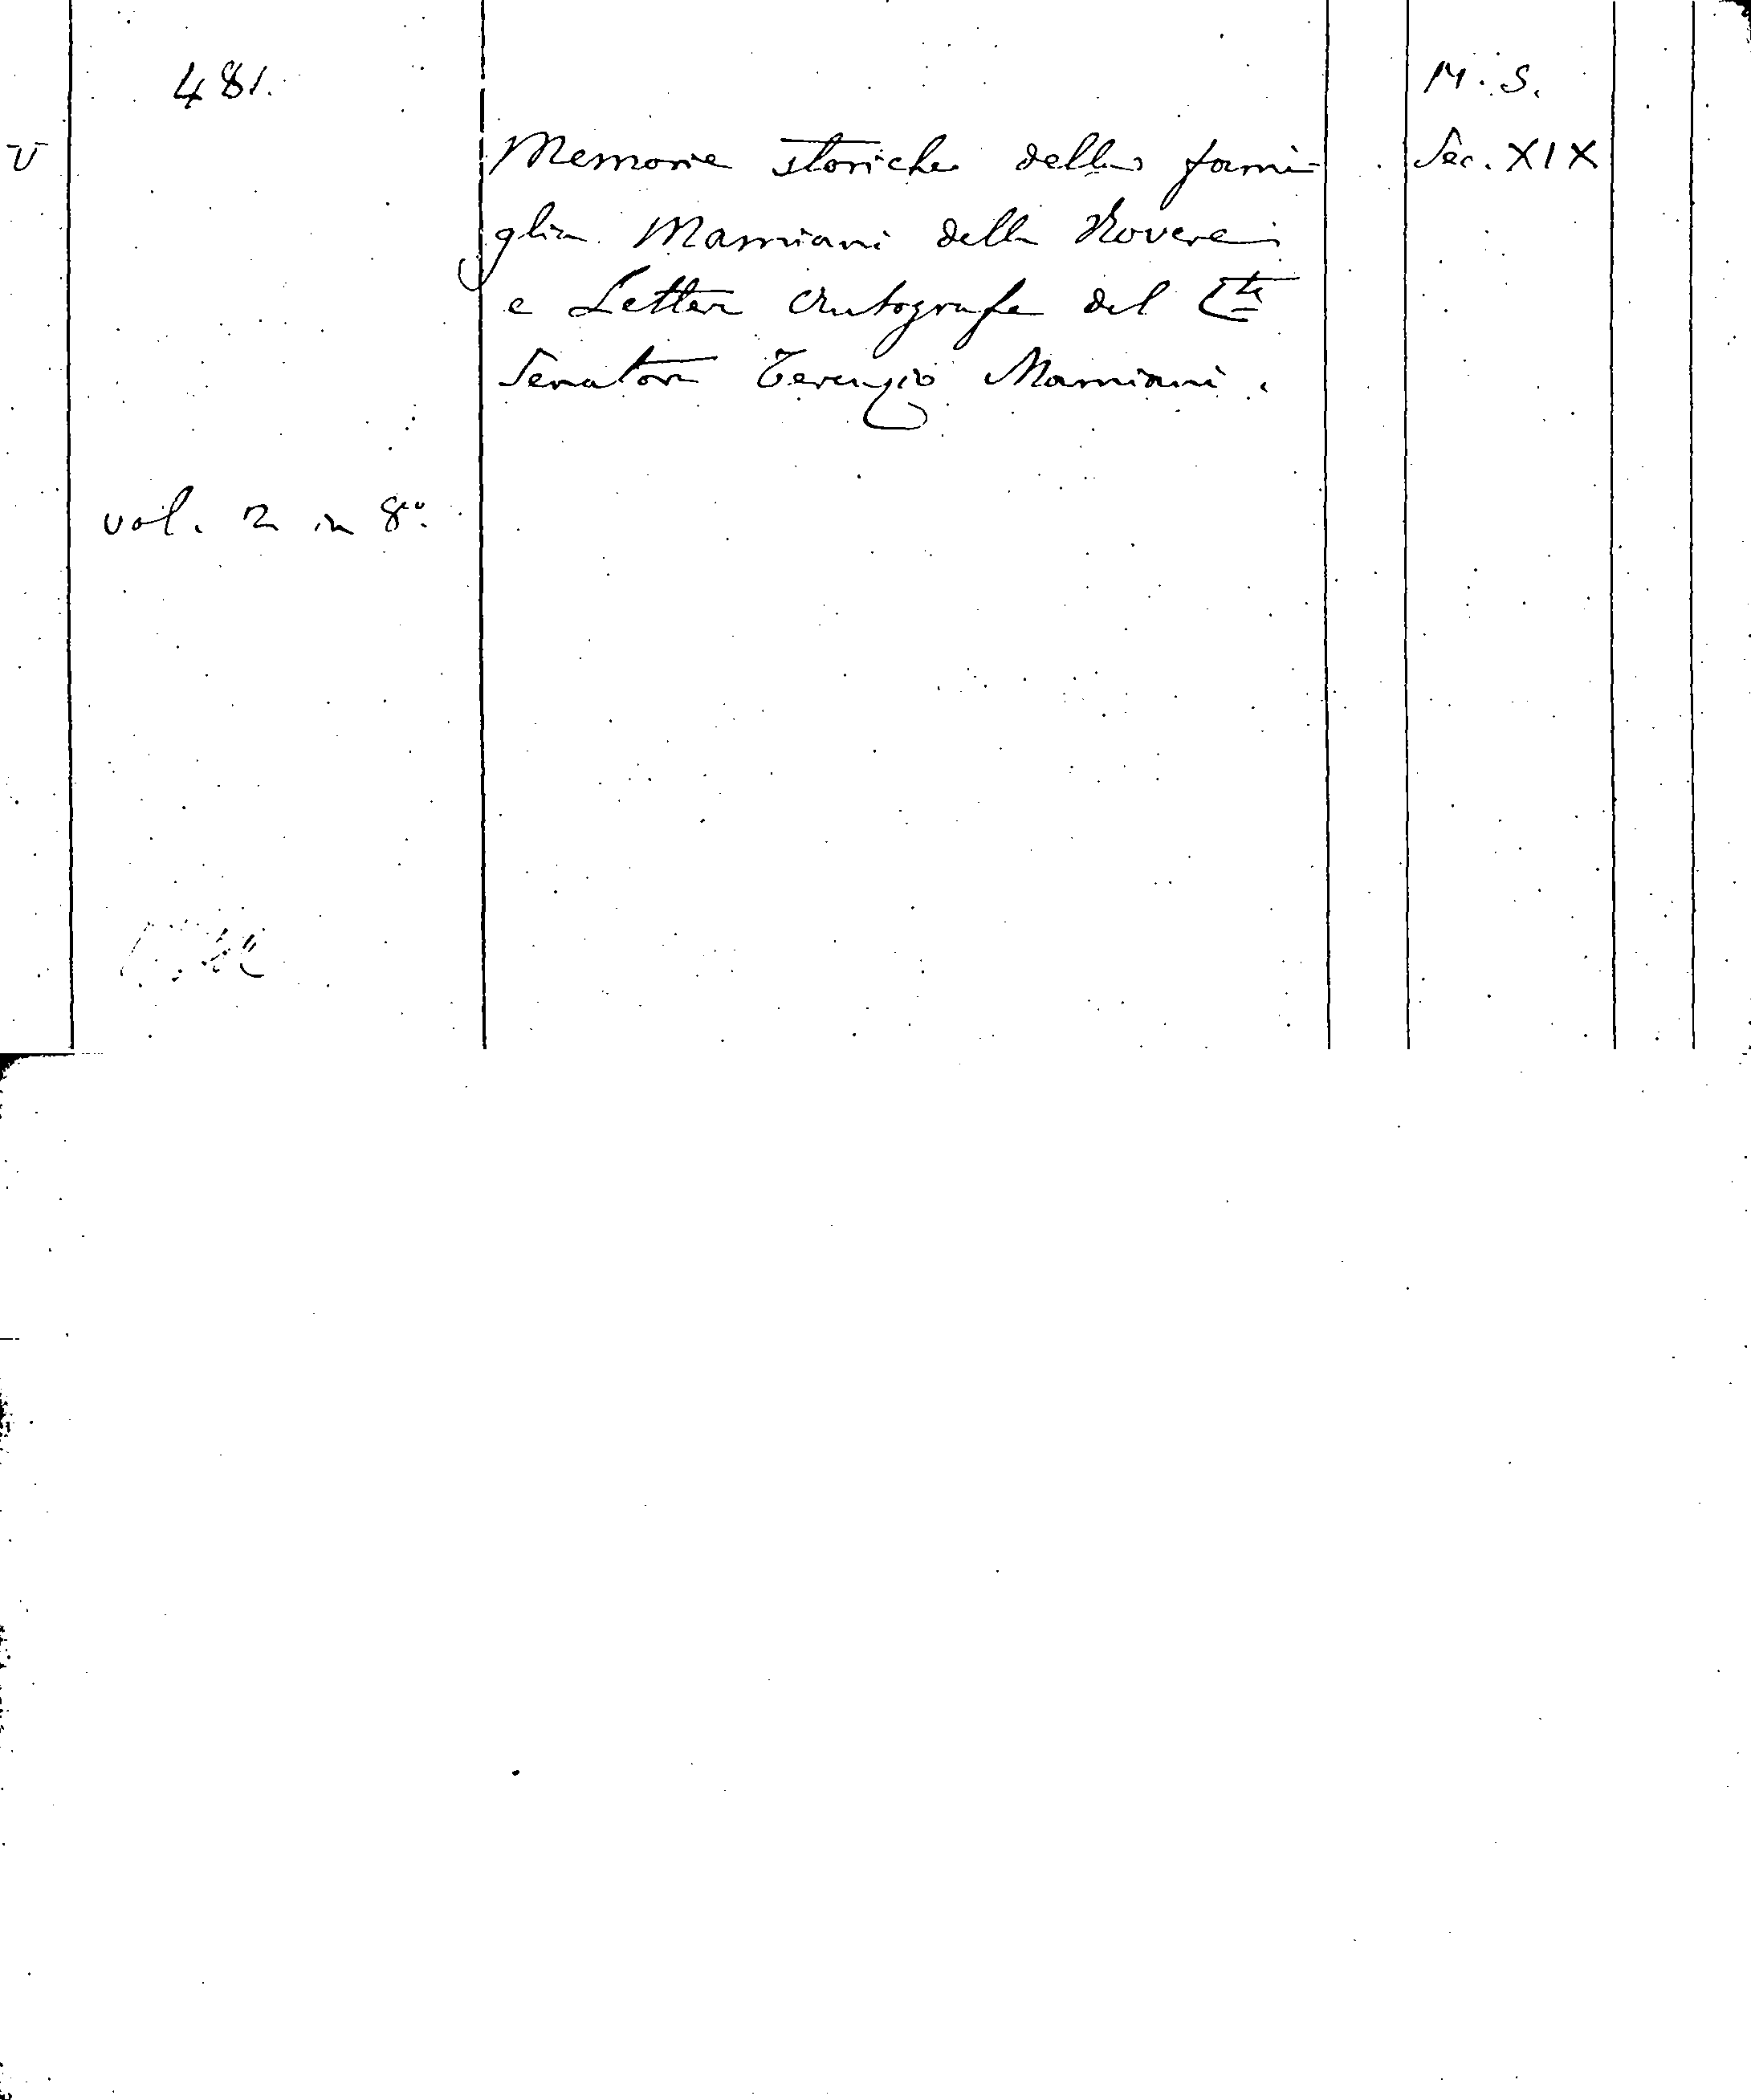 481.
M. S.
V
Memorie storiche della fami-
glia Mamiani della Rovere
e Lettere Autografe del Cte
Senatore Terenzio Mamiani.
Sec. XIX
vol. 2 in 8vo.